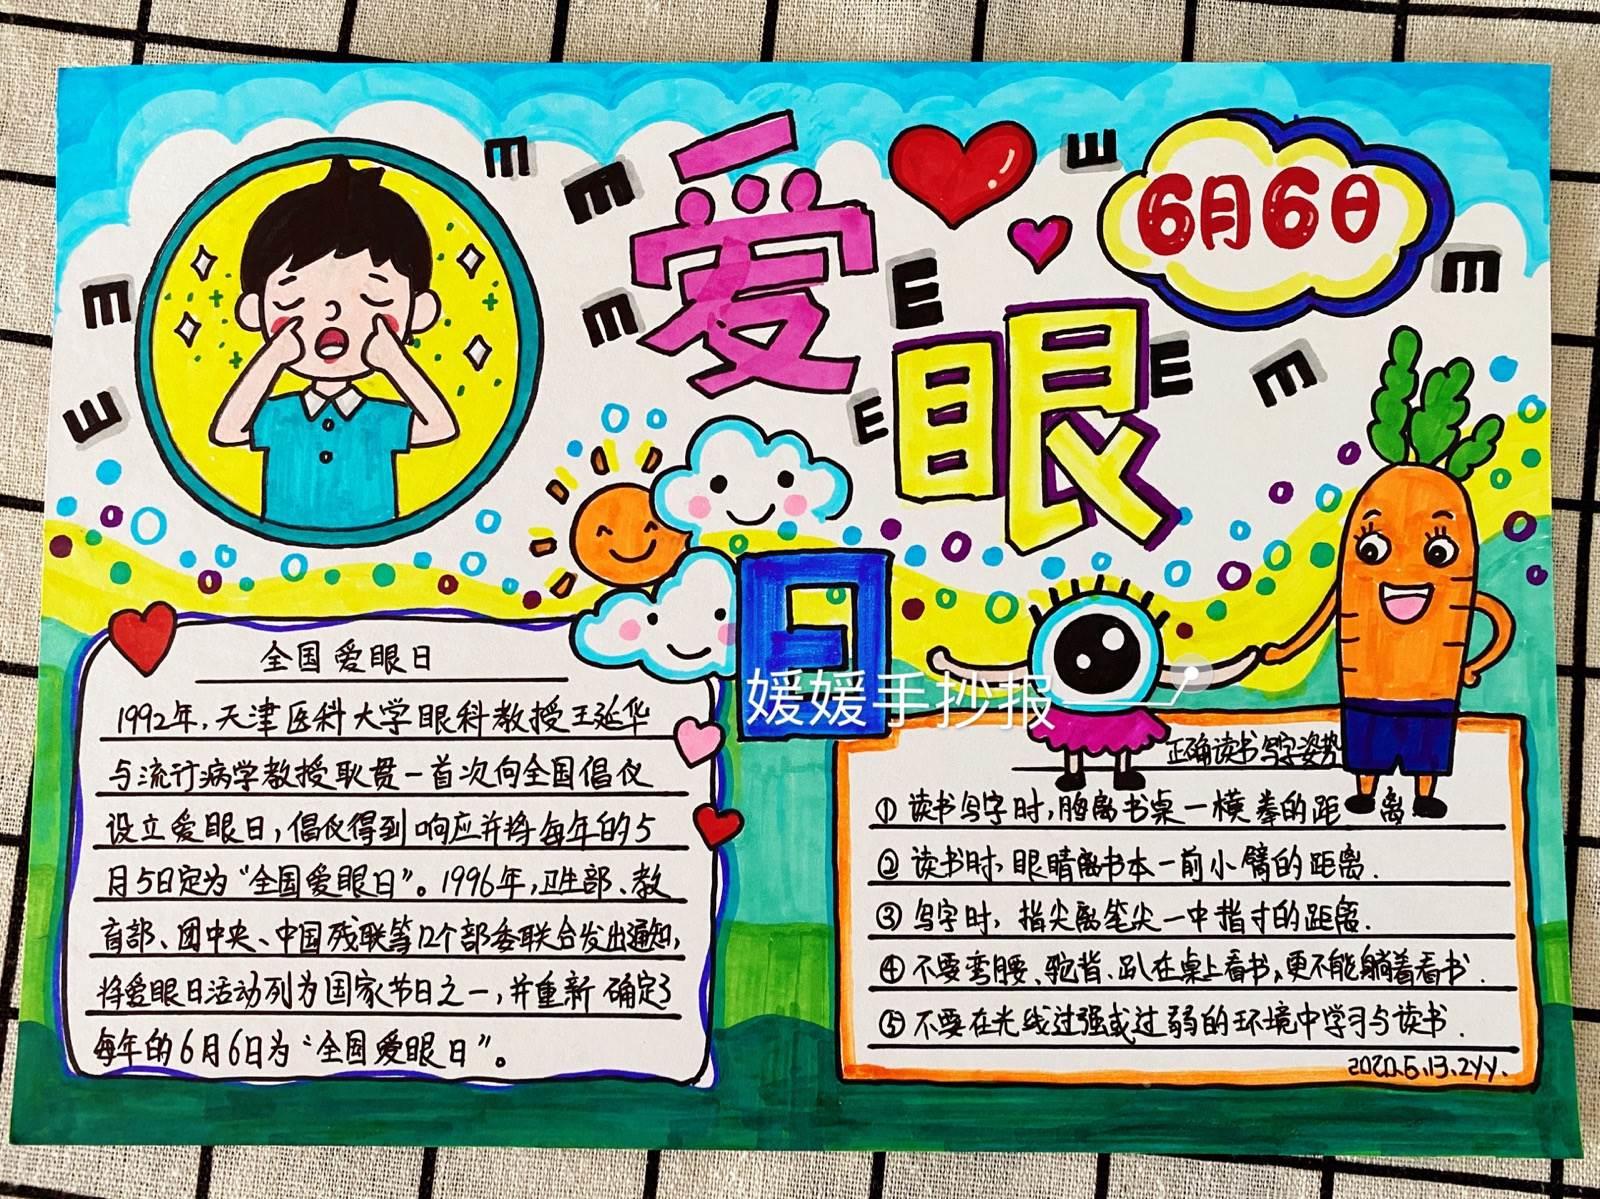 爱眼日
6月6日
全国爱眼日
1992年,天津医科大学眼科教授王延华
与流行病学教授耿贯一首次向全国倡仪
设立爱眼日,倡仪得到响应并将每年的5
月5日定为“全国爱眼日”。1996年,卫生部、教
育部、团中央、中国残联等12个部委联合发出通知,
将爱眼日活动列为国家节日之一,并重新确定了
每年的6月6日为“全国爱眼日”。
媛媛手抄报
正确读书写字姿势
①读书写字时,胸离书桌一横拳的距离.
②读书时,眼睛离书本一前小臂的距离.
③写字时,指尖离笔尖一中指寸的距离.
④不要弯腰、驼背、趴在桌上看书,更不能躺着看书.
⑤不要在光线过强或过弱的环境中学习与读书.
2020.5.13.ZYY.
E
E
E
E
E
E
E
E
E
E
E